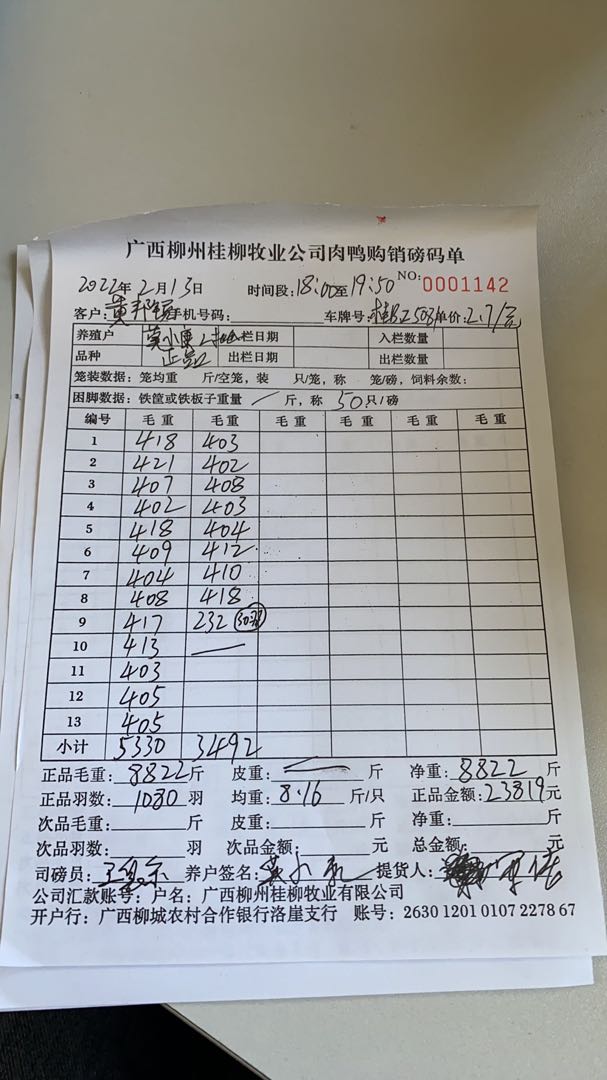 广西柳州桂柳牧业公司肉鸭购销磅码单
2022年2月13日 时间段:18:00至19:50 NO:0001142
客户: 黄 手机号码: 车牌号: 单价:2.7/
养殖户 莫小 入栏日期 入栏数量
品种 正 出栏日期 出栏数量
笼装数据: 笼均重 斤/空笼,装 只/笼,称 笼/磅,饲料余数:
困脚数据: 铁筐或铁板子重量 / 斤,称 50只/磅
编号 毛重 毛重 毛重 毛重 毛重 毛重
1 418 403
2 421 402
3 407 408
4 402 403
5 418 404
6 409 412
7 404 410
8 408 418
9 417 232 30羽
10 413 —
11 403
12 405
13 405
小计 5330 3492
正品毛重: 8822斤 皮重: — 斤 净重: 8822 斤
正品羽数: 1080 羽 均重: 8.16 斤/只 正品金额: 23819元
次品毛重: 斤 皮重: 斤 净重: 斤
次品羽数: 羽 次品金额: 元 总金额: 元
司磅员: 养户签名: 莫小 提货人:
公司汇款账号: 户名: 广西柳州桂柳牧业有限公司
开户行: 广西柳城农村合作银行洛崖支行 账号: 2630 1201 0107 2278 67